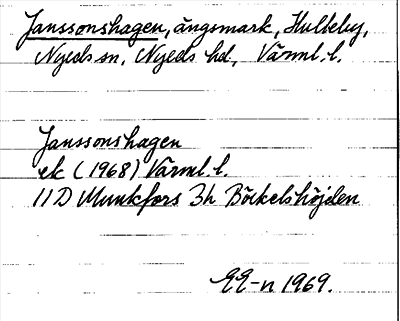 Janssonshagen, ängsmark, Hulteby,
Nyeds sn, Nyeds hd, Värml. l.
Janssonshagen
ek (1968) Värml. l.
11D Munkfors 3h Böckelshöjden
EE-n 1969.